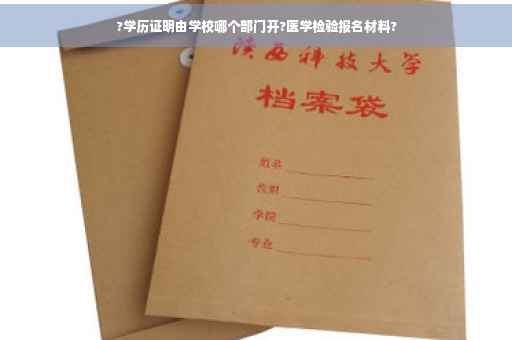 ?学历证明由学校哪个部门开?医学检验报名材料?
陕西科技大学
档案袋
姓名
学院
专业